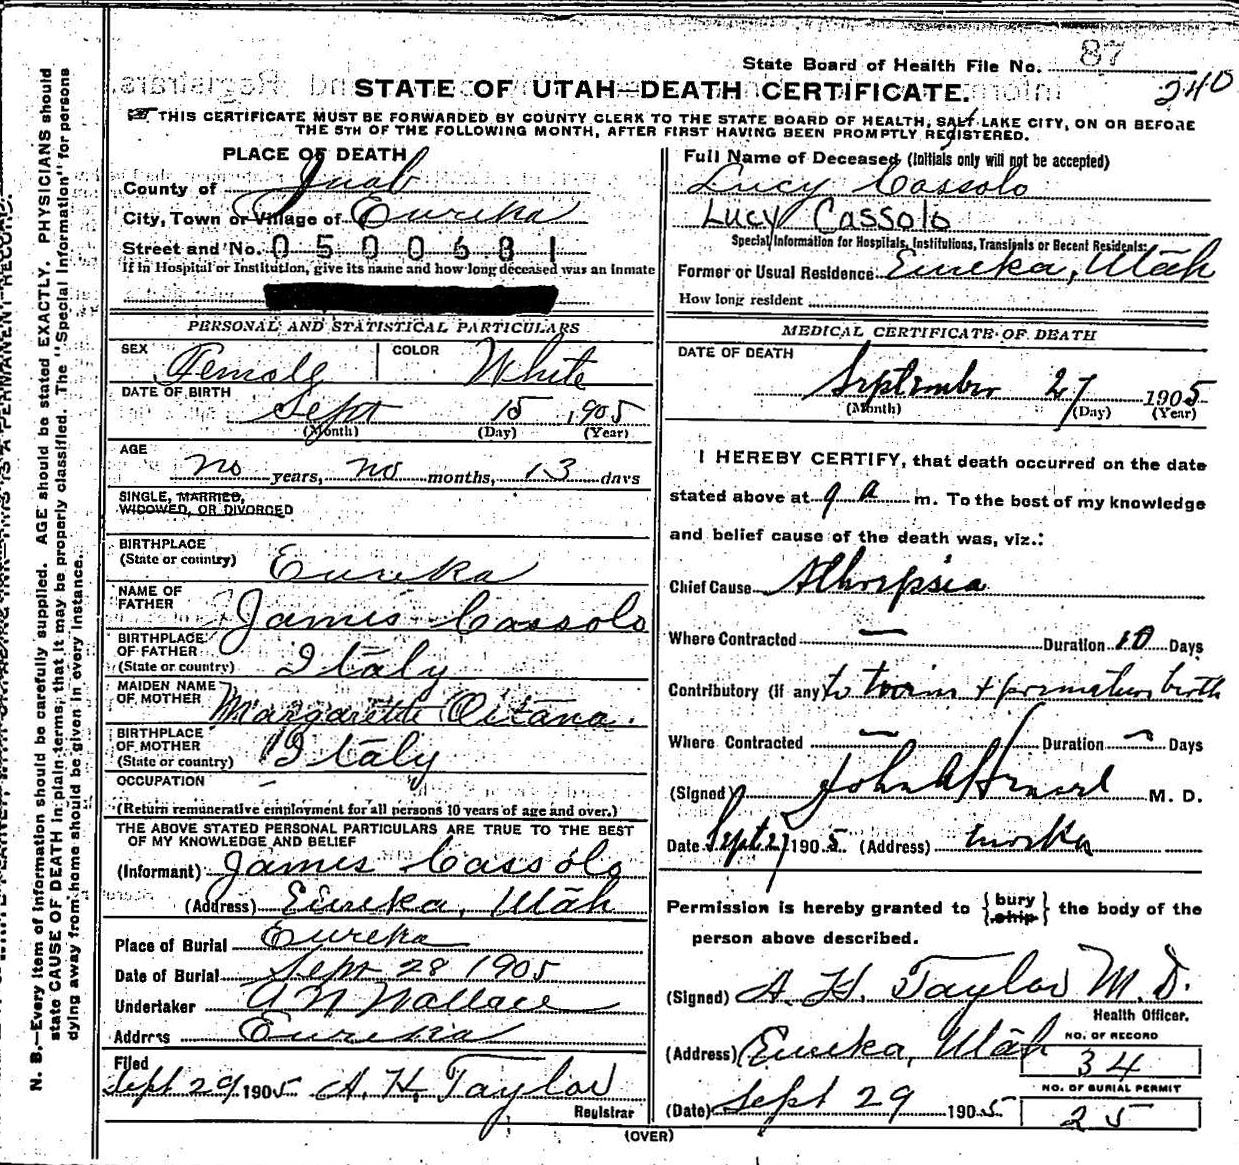 State Board of Health File No. 87
240
STATE OF UTAH—DEATH CERTIFICATE.
THIS CERTIFICATE MUST BE FORWARDED BY COUNTY CLERK TO THE STATE BOARD OF HEALTH, SALT LAKE CITY, ON OR BEFORE
THE 5TH OF THE FOLLOWING MONTH, AFTER FIRST HAVING BEEN PROMPTLY REGISTERED.
PLACE OF DEATH
County of Juab
City, Town or Village of Eureka
Street and No. 0500681
If in Hospital or Institution, give its name and how long deceased was an inmate
PERSONAL AND STATISTICAL PARTICULARS
SEX Female COLOR White
DATE OF BIRTH
Sept 15 1905
(Month) (Day) (Year)
AGE
no years, no months, 13 days
SINGLE, MARRIED,
WIDOWED, OR DIVORCED
BIRTHPLACE
(State or country) Eureka
NAME OF
FATHER James Cassolo
BIRTHPLACE
OF FATHER
(State or country) Italy
MAIDEN NAME
OF MOTHER Margarette
BIRTHPLACE
OF MOTHER
(State or country) Italy
OCCUPATION –
(Return remunerative employment for all persons 10 years of age and over.)
THE ABOVE STATED PERSONAL PARTICULARS ARE TRUE TO THE BEST
OF MY KNOWLEDGE AND BELIEF
(Informant) James Cassolo
(Address) Eureka, Utah
Place of Burial Eureka
Date of Burial Sept 28 1905
Undertaker A N Wallace
Address Eureka
Filed
Sept 29 1905 A. H. Taylor
Registrar
Full Name of Deceased (Initials only will not be accepted)
Lucy Cassolo
Lucy Cassolo
Special Information for Hospitals, Institutions, Transients or Recent Residents:
Former or Usual Residence Eureka, Utah
How long resident
MEDICAL CERTIFICATE OF DEATH
DATE OF DEATH
September 27 1905
(Month) (Day) (Year)
I HEREBY CERTIFY, that death occurred on the date
stated above at 9 a m. To the best of my knowledge
and belief cause of the death was, viz.:
Chief Cause Athrepsia
Where Contracted — Duration 10 Days
Contributory (if any) to twin + premature birth
Where Contracted — Duration — Days
(Signed) John M. D.
Date Sept 27 1905. (Address) Eureka
Permission is hereby granted to {bury
ship} the body of the
person above described.
(Signed) A. H. Taylor M. D.
Health Officer.
(Address) Eureka, Utah
NO. OF RECORD
34
NO. OF BURIAL PERMIT
(Date) Sept 29 1905 25
(OVER)
N. B.—Every item of information should be carefully supplied. AGE should be stated EXACTLY. PHYSICIANS should
state CAUSE OF DEATH in plain terms, that it may be properly classified. The "Special Information" for persons
dying away from home should be given in every instance.